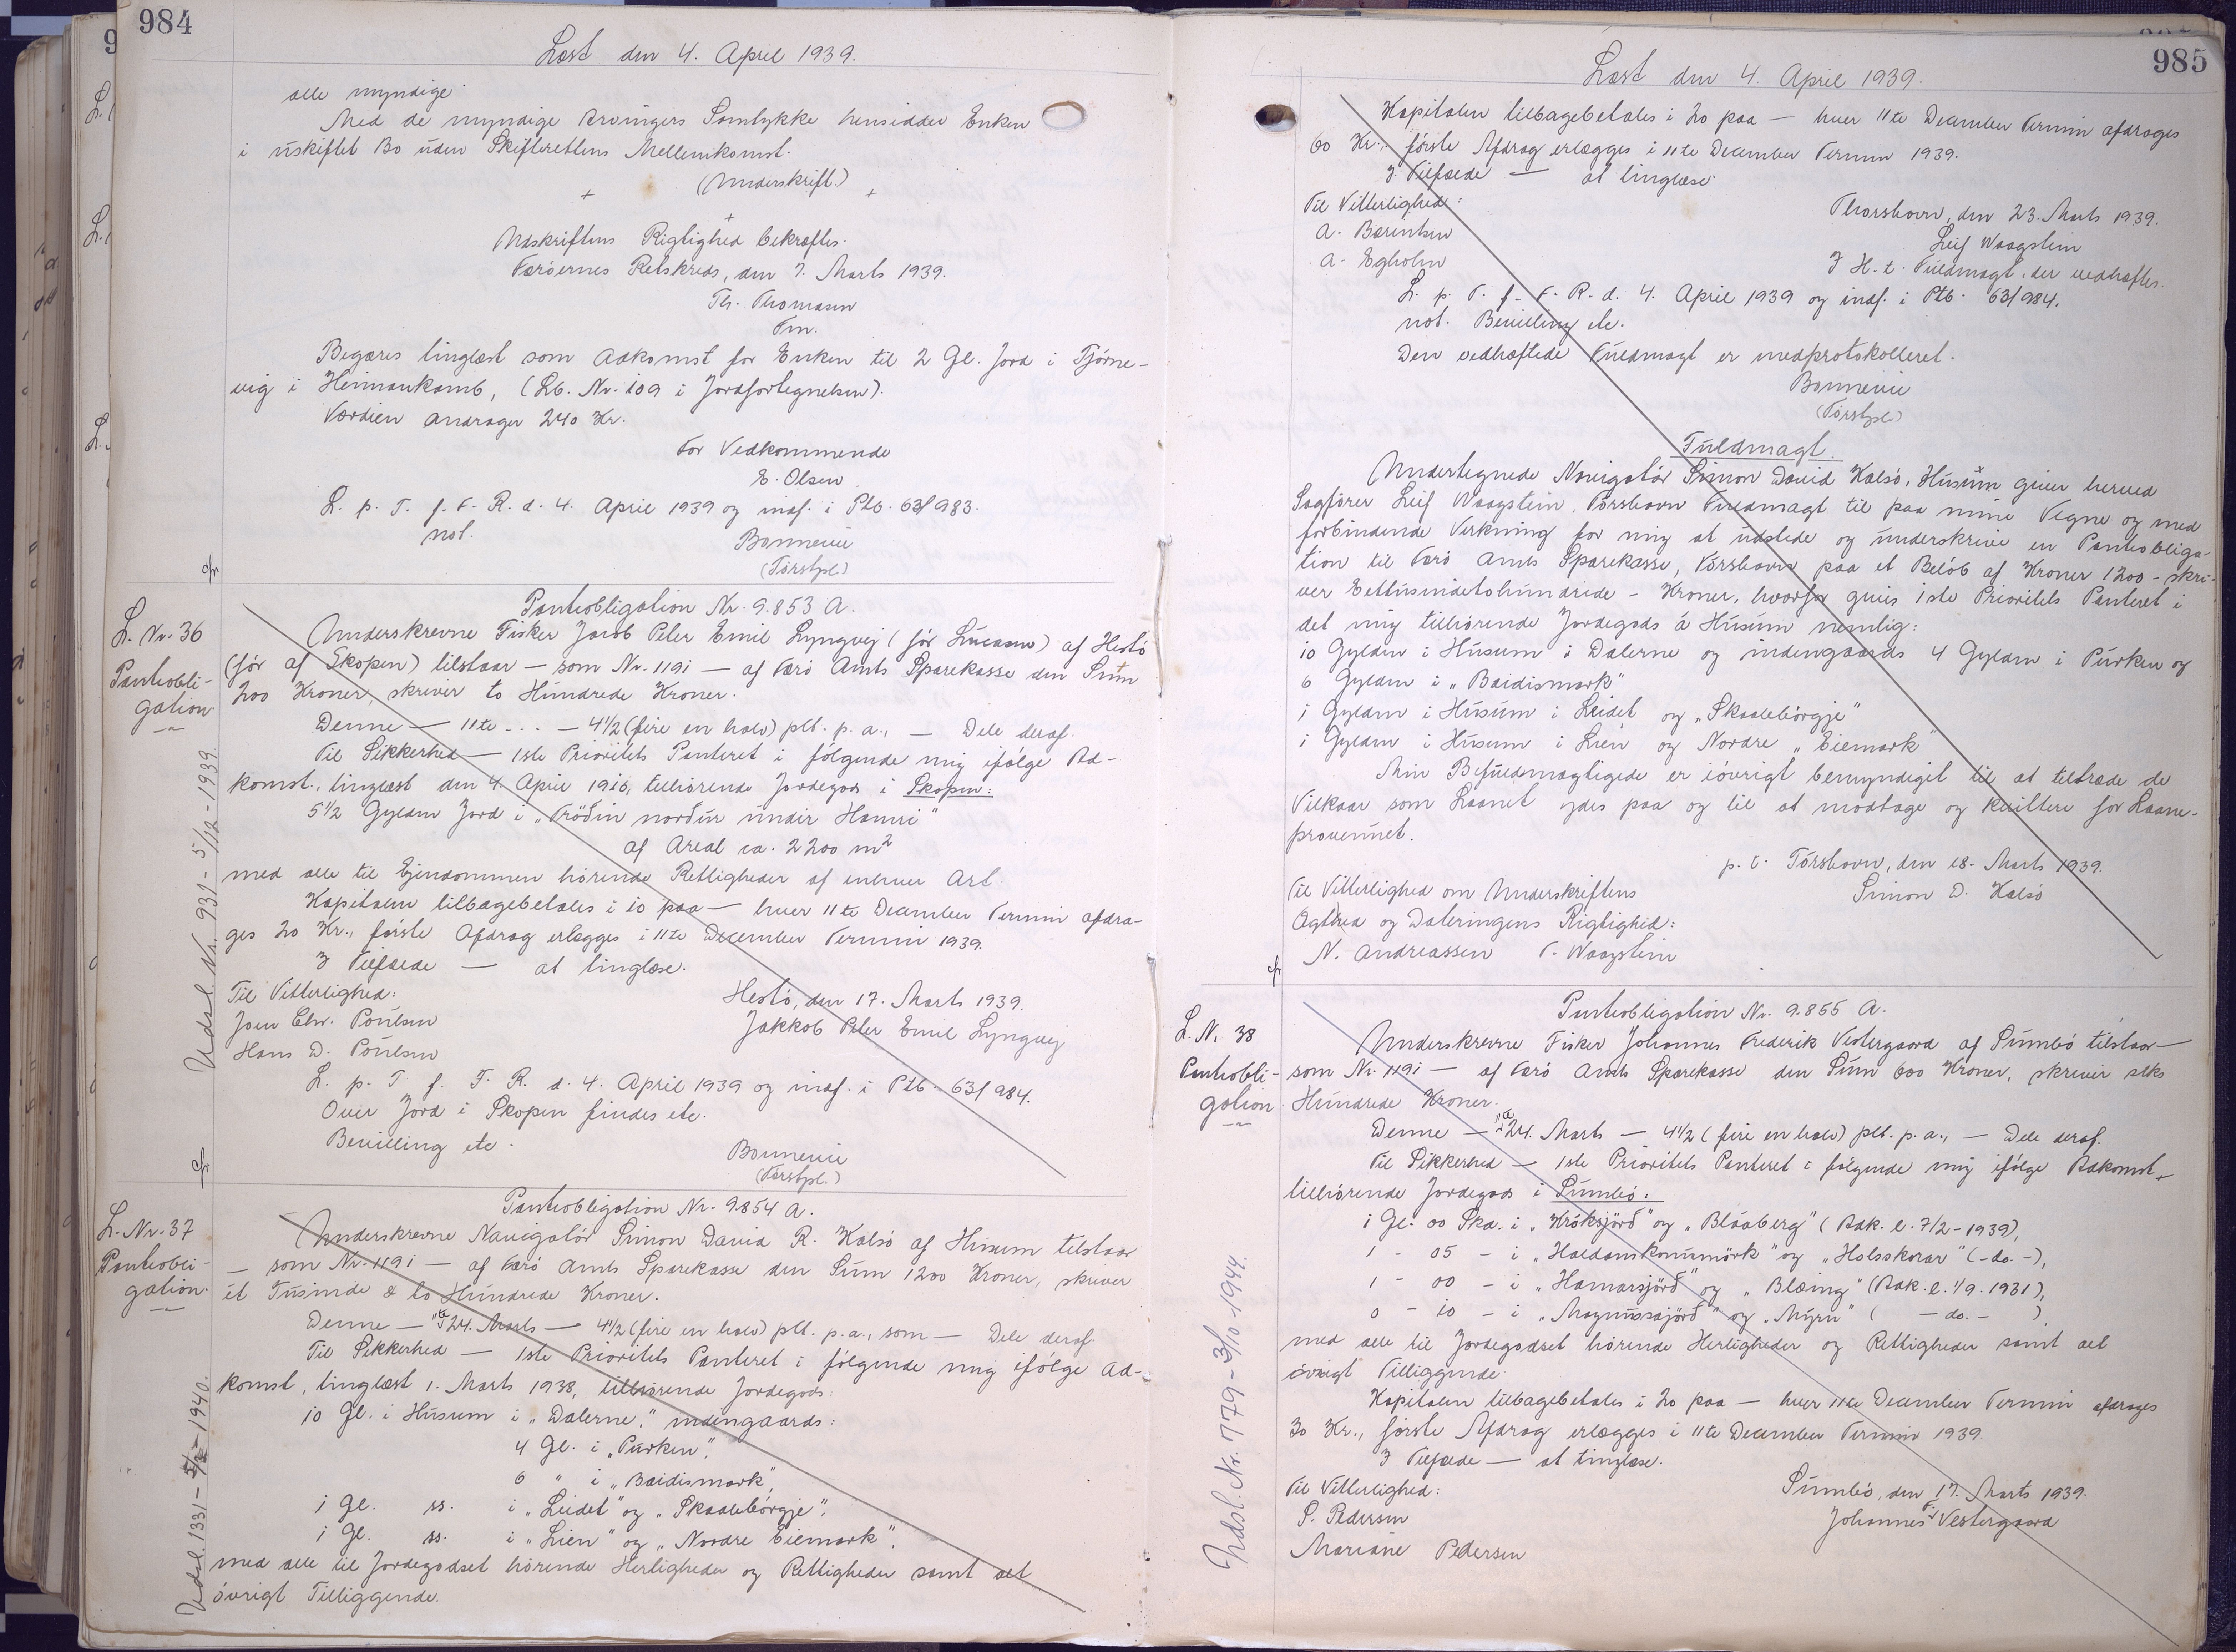 984
Læst den 4. April 1939.
alle myndige.
Med de myndige Arvingers Samtykke hensidder Enken
i uskiftet Bo uden Skifterettens Mellemkomst.
(Underskrift.)
Udskriftens Rigtighed bekræftes.
Færöernes Retskreds, den 7. Marts 1939.
Th. Thomasen
Fm.
Begæres tinglæst som Adkomst for Enken til 2 Gl. Jord i Tjörne-
vig i Heimankamb, (Lb. Nr. 109 i Jordfortegnelsen).
Værdien andrager 240 Kr.
For Vedkommende
E. Olsen
L. p. T. f. F. R. d. 4. April 1939 og indf. i Ptb. 63/983.
not.
Bonnevie
(Tórstpl)
cfr.
L. Nr. 36
Pantobli-
gation
Udsl. Nr. 931 - 5/12 - 1939.
Pantobligation Nr. 9.853 A.
Underskrevne Fisker Jacob Peter Emil Lyngvej (för Lucasen) af Hestö
(för af Skopen) tilstaar — som Nr. 1191 — af Færö Amts Sparekasse den Sum
200 Kroner, skriver to Hundrede Kroner.
Denne — 11te - - - — 4½ (fire en halv) pCt. p. a., — Dele deraf.
Til Sikkerhed — 1ste Prioritets Panteret i fölgende mig ifölge Ad-
komst, tinglæst den 4. April 1916, tilhörende Jordegods i Skopen:
5½ Gylden Jord i "Tröðin norður undir Hamri"
af Areal ca. 2200 m²
med alle til Ejendommen hörende Rettigheder af enhver Art
Kapitalen tilbagebetales i 10 paa — hver 11te December Termin afdra-
ges 20 Kr., förste Afdrag erlægges i 11te December Termin 1939.
I Tilfælde — at tinglæse.
Til Vitterlighed:
Hestö, den 17. Marts 1939.
Joen Chr. Poulsen
Jakkob Peter Emil Lyngvej
Hans D. Poulsen
L. p. T. f. F. R. d. 4. April 1939 og indf. i Ptb. 63/984.
Over Jord i Skopen findes etc.
Bevilling etc.
Bonnevie
(Tórstpl.)
cfr.
L. Nr. 37
Pantobli-
gation.
Udsl. 1331 - 5/3 - 1940.
Pantobligation Nr. 9854 A.
Underskrevne Navigatör Simon David R. Kalsö af Husum tilstaar
— som Nr. 1191 — af Færö Amts Sparekasse den Sum 1200 Kroner, skriver
ét Tusinde & to Hundrede Kroner.
Denne — 24. Marts — 4½ (fire en halv) pCt. p. a., som — Dele deraf
Til Sikkerhed — 1ste Prioritets Panteret i fölgende mig ifölge Ad-
komst, tinglæst 1. Marts 1938, tilhörende Jordegods:
10 Gl. i Husum i "Dalerne," indengaards:
4 Gl. i "Purken",
6 " i "Baidismark",
1 Gl. ss. i "Leidet" og "Skaalebörgje".
1 Gl. ss. i "Lien" og "Nordre Eiemark".
med alle til Jordegodset hörende Herligheder og Rettigheder samt alt
övrigt Tilliggende.
985
Læst den 4. April 1939.
Kapitalen tilbagebetales i 20 paa — hver 11te December Termin afdrages
60 Kr., förste Afdrag erlægges i 11te December Termin 1939.
I Tilfælde — at tinglæse
Til Vitterlighed:
Thorshavn, den 23. Marts 1939.
A. Barentsen
Leif Waagstein
A. Egholm
I H. t. Fuldmagt, der vedhæftes.
L. p. T. f. F. R. d. 4. April 1939 og indf. i Ptb. 63/984.
not. Bevilling etc.
Den vedhæftede Fuldmagt er medprotokolleret.
Bonnevie
(Tórstpl)
Fuldmagt.
Undertegnede Navigatör Simon David Kalsö, Husum giver herved
Sagförer Leif Waagstein, Tórshavn Fuldmagt til paa mine Vegne og med
forbindende Virkning for mig at udstede og underskrive en Pantobliga-
tion til Færö Amts Sparekasse, Tórshavn paa et Belöb af Kroner 1200 - skri-
ver Ettusindetohundrede - Kroner, hvorfor gives 1ste Prioritets Panteret i
det mig tilhörende Jordegods á Húsum nemlig:
10 Gylden i Húsum i Dalerne og indengaards 4 Gylden i Purken og
6 Gylden i "Baidismark"
1 Gylden i Húsum i Leidet og "Skaalebörgje"
1 Gylden i Húsum i Lien og Nordre "Eiemark"
Min Befuldmægtigede er iövrigt bemyndiget til at tiltræde de
Vilkaar som Laanet ydes paa og til at modtage og kvittere for Laane-
provenuet.
p. t. Tórshavn, den 18. Marts 1939.
Til Vitterlighed om Underskriftens
Simon D. Kalsö
Ægthed og Dateringens Rigtighed:
N. Andreassen T. Waagstein
cfr.
L. Nr. 38
Pantobli-
gation
Udsl. Nr. 1779 - 3/10 - 1944.
Pantobligation Nr. 9.855 A.
Underskrevne Fisker Johannes Frederik Vestergaard af Sumbö tilstaar —
som Nr. 1191 — af Færö Amts Sparekasse den Sum 600 Kroner, skriver seks
Hundrede Kroner.
Denne — 24. Marts — 4½ (fire en halv) pCt. p. a., — Dele deraf.
Til Sikkerhed — 1ste Prioritets Panteret i fölgende mig ifölge Adkomst,
tilhörende Jordegods i Sumbö:
1 Gl. 00 Skd. i "Króksjörð" og "Bláaberg" (Adk. l. 7/2 - 1939),
1 - 05 - i "Haldanskonumörk" og "Halsskorar" (-do.-),
1 - 00 - i "Hamarsjörð" og "Blæing" (Adk. l. 1/9. 1931),
0 - 10 - i "Magnussajörð" og "Mýrn" ( - do. - )
med alle til Jordegodset hörende Herligheder og Rettigheder samt alt
övrigt Tilliggende.
Kapitalen tilbagebetales i 20 paa — hver 11te December Termin afdrages
30 Kr., förste Afdrag erlægges i 11te December Termin 1939.
I Tilfælde — at tinglæse.
Til Vitterlighed:
Sumbö, den 17. Marts 1939.
S. Pedersen
Johannes Fr. Vestergaard
Mariane Pedersen